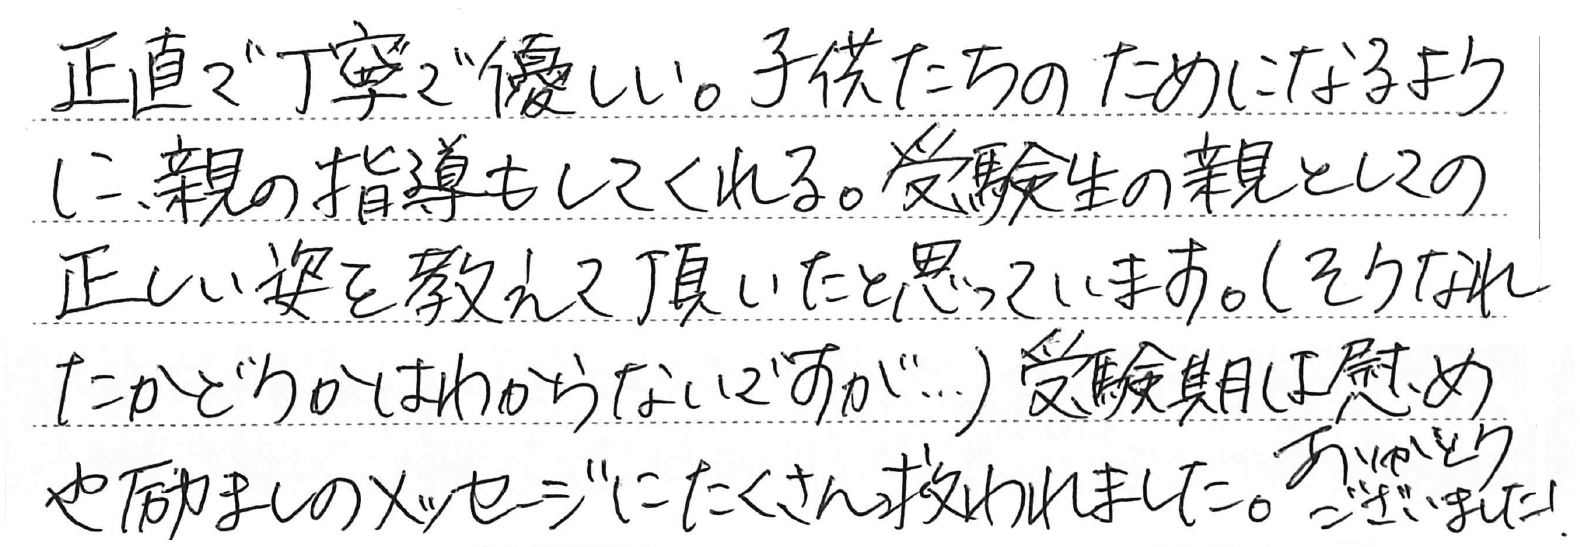 正直で丁寧で優しい。子供たちのためになるよう
に、親の指導もしてくれる。受験生の親としての
正しい姿を教えて頂いたと思っています。(そうなれ
たかどうかはわからないですが…)受験期は慰め
や励ましのメッセージにたくさん救われました。ありがとう
ございました!